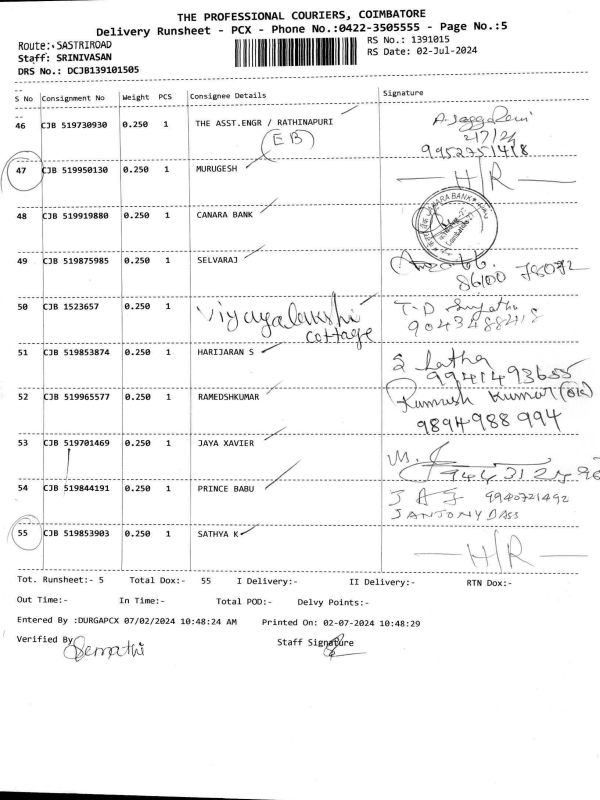 THE PROFESSIONAL COURIERS, COIMBATORE
Delivery Runsheet - PCX - Phone No.:0422-3505555 - Page No.:5
Route:.SASTRIROAD
RS No.: 1391015
Staff: SRINIVASAN
RS Date: 02-Jul-2024
DRS No.: DCJB139101505
S No Consignment No Weight PCS Consignee Details Signature
46 CJB 519730930 0.250 1 THE ASST.ENGR / RATHINAPURI
(EB)
2/7/24
9952751418
47 CJB 519950130 0.250 1 MURUGESH H/R
48 CJB 519919880 0.250 1 CANARA BANK
CANARA BANK
49 CJB 519875985 0.250 1 SELVARAJ
86100 78072
50 CJB 1523657 0.250 1 Viyayalakshi T.D
cottage 9043488418
51 CJB 519853874 0.250 1 HARIJARAN S S Latha
9941493655
52 CJB 519965577 0.250 1 RAMEDSHKUMAR Ramesh Kumar
9894988994
53 CJB 519701469 0.250 1 JAYA XAVIER
54 CJB 519844191 0.250 1 PRINCE BABU 9940721492
J ANTONY DASS
55 CJB 519853903 0.250 1 SATHYA K H/R
Tot. Runsheet:- 5 Total Dox:- 55 I Delivery:- II Delivery:- RTN Dox:-
Out Time:- In Time:- Total POD:- Delvy Points:-
Entered By :DURGAPCX 07/02/2024 10:48:24 AM Printed On: 02-07-2024 10:48:29
Verified By Staff Signature